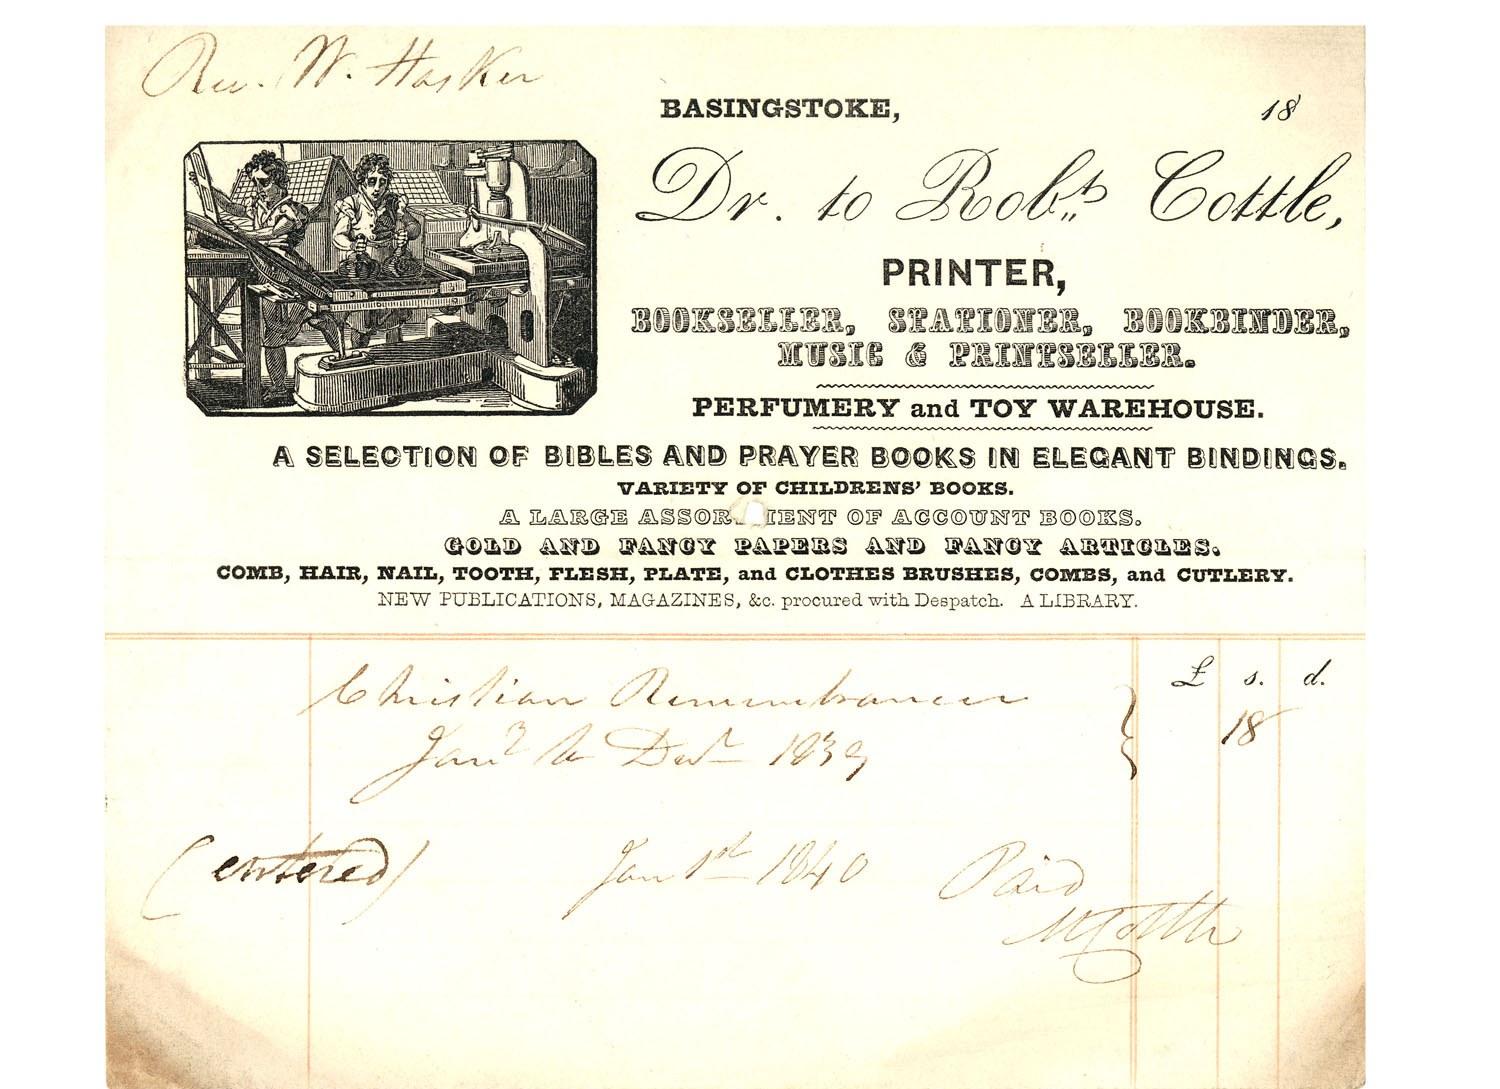 Rev. W. Hasker
BASINGSTOKE, 18
Dr. to Robts. Cottle,
PRINTER,
BOOKSELLER, STATIONER, BOOKBINDER,
MUSIC & PRINTSELLER.
PERFUMERY and TOY WAREHOUSE.
A SELECTION OF BIBLES AND PRAYER BOOKS IN ELEGANT BINDINGS.
VARIETY OF CHILDRENS' BOOKS.
A LARGE ASSOR IENT OF ACCOUNT BOOKS.
GOLD AND FANCY PAPERS AND FANCY ARTICLES.
COMB, HAIR, NAIL, TOOTH, FLESH, PLATE, and CLOTHES BRUSHES, COMBS, and CUTLERY.
NEW PUBLICATIONS, MAGAZINES, &c. procured with Despatch. A LIBRARY.
£ s. d.
Christian Remembrancer
Jany to Decr 1839 18
(entered) Jan 1st 1840 Paid
Cottle